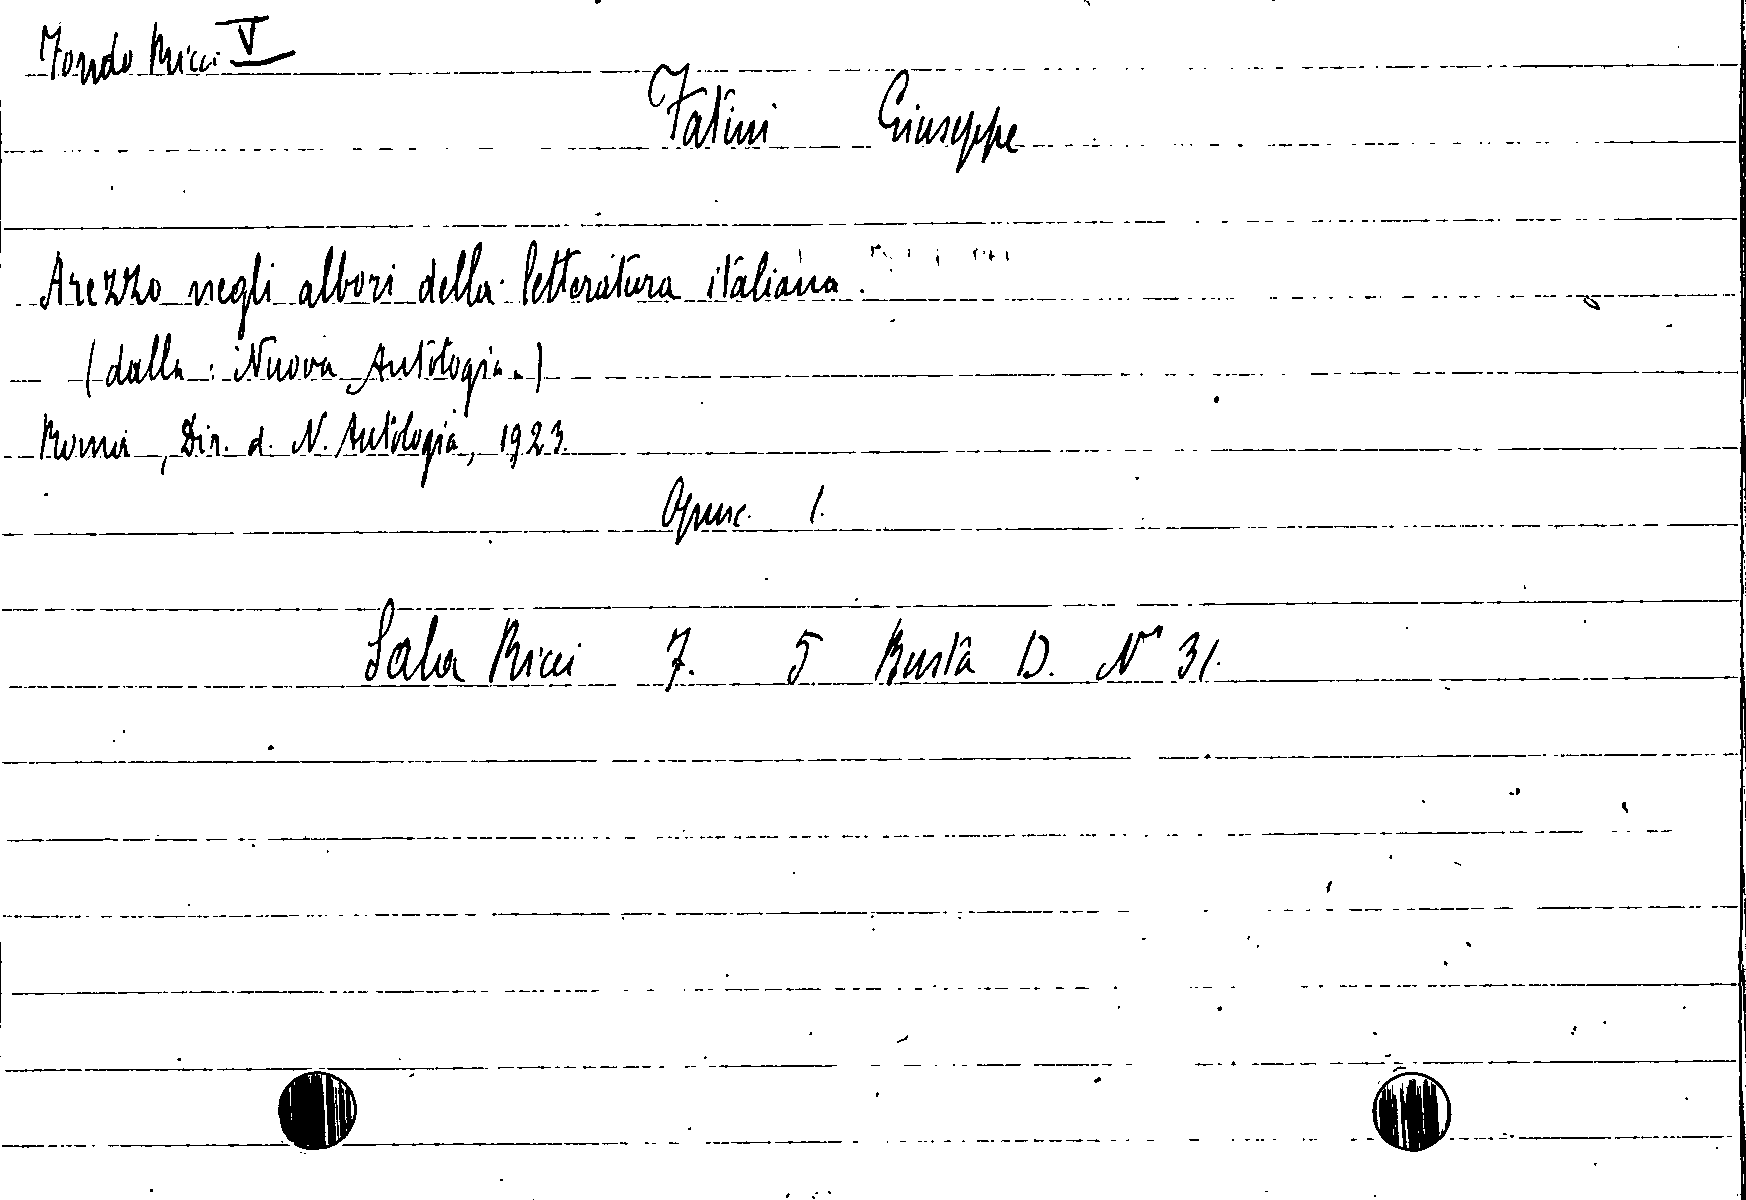 Fondo Ricci V
Fatini Giuseppe
Arezzo negli albori della letteratura italiana.
(dalla: Nuova Antologia.)
Roma, Dir. d. N. Antologia, 1923.
Opusc. 1.
Sala Ricci F. 5 Busta D. N° 31.